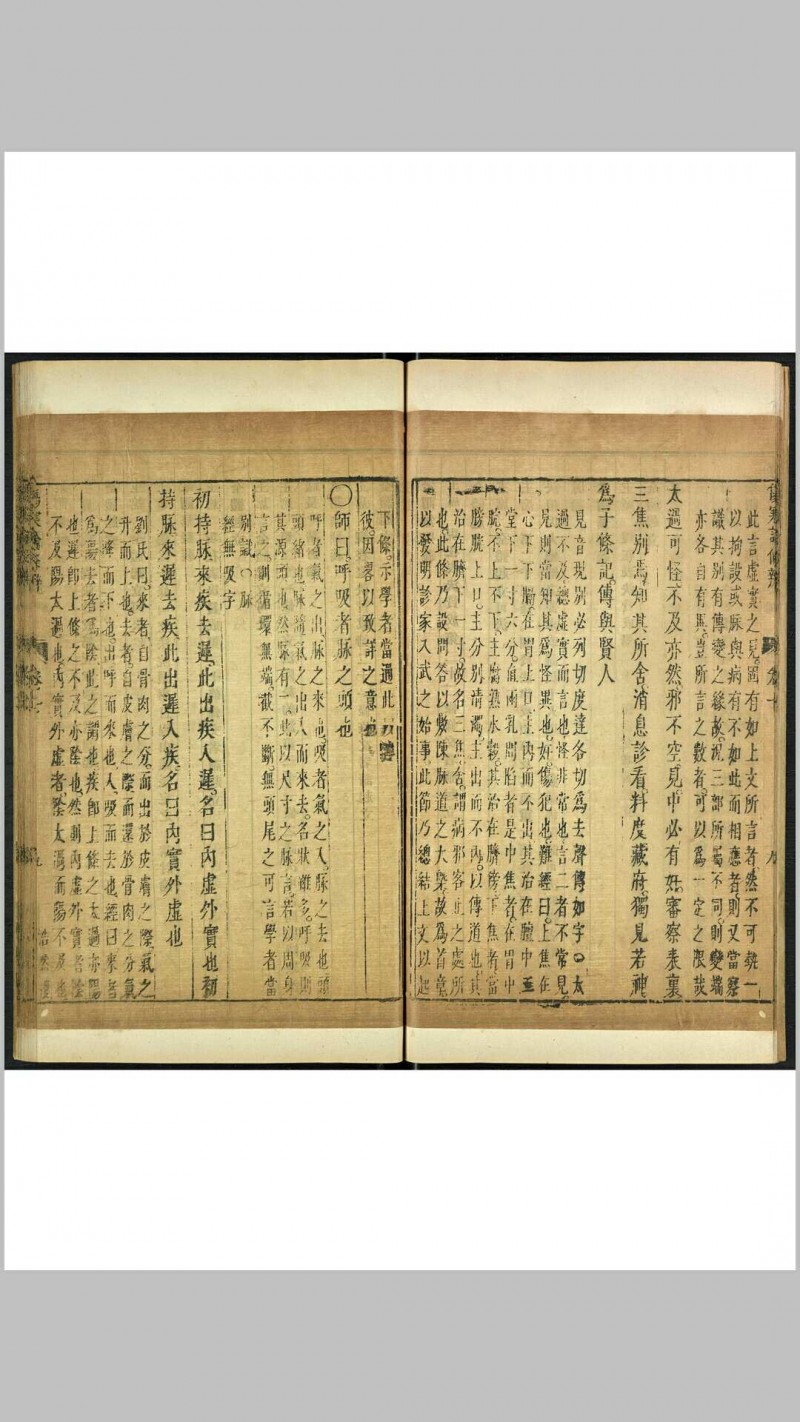 此言虛實之見固有如上文所言者然不可執一
以拘設或脉與病有不如此而相應者則又當察
識其別有傳變之緣故況三部所屬不同則變端
亦各自有異豈所言之數者可以為一定之限哉
太過可怪不及亦然邪不空見中必有奸審察表裏
三焦別焉知其所舍消息診看料度藏府獨見若神
為子條記傳與賢人
見音現別必列切度達各切為去聲傳如字○太
過不及總虛實而言也怪非常也言二者不常見
見則當知其為怪異也奸傷犯也難經曰上焦在
心下下膈在胃上口主內而不出其治在膻中玉
堂下一寸六分直兩乳間陷者是中焦者在胃中
脘不上不下主腐熟水穀其治在臍傍下焦者當
膀胱上口主分別清濁主出而不內以傳道也其
治在臍下一寸故名三焦舍謂病邪客止之處所
也此條乃設問答以敷陳脉道之大槩故為首章
以發明診家入武之始事此節乃總結上文以起
下條示學者當過此
彼因畧以致詳之意
○師曰呼吸者脉之頭也
呼者氣之出脉之來也吸者氣之入脉之去也頭
頭緒也脉隨氣之出入而來去名狀雖多呼吸則
其源頭也然脉有二此以尺寸之脉言若以周身
言之則循環無端截不斷無頭尾之可言學者當
別識○脉
經無吸字
初持脉來疾去遲此出疾入遲名曰內虛外實也初
持脉來遲去疾此出遲入疾名曰內實外虛也
劉氏曰來者自骨肉之分而出於皮膚之際氣之
升而上也去者自皮膚之際而還於骨肉之分氣
之降而下也出呼而來也入吸而去也經曰來者
為陽去者為陰此之謂也疾即上條之太過亦陽
也遲即上條之不及亦陰也然則內虛外實者陰
不及陽太過也內實外虛者陰太過而陽不及也